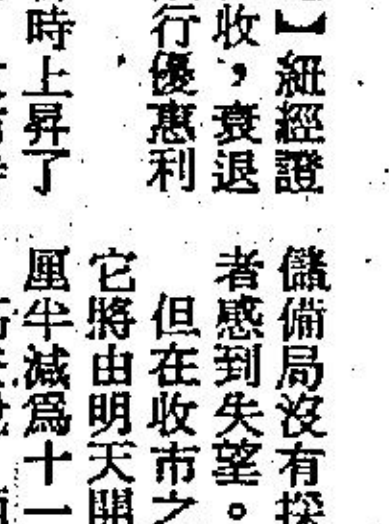 】紐經證
收,衰退
行優惠利
時上昇了
儲備局沒有
者感到失望。
但在收市之
它將由明天開
厘半減爲十一